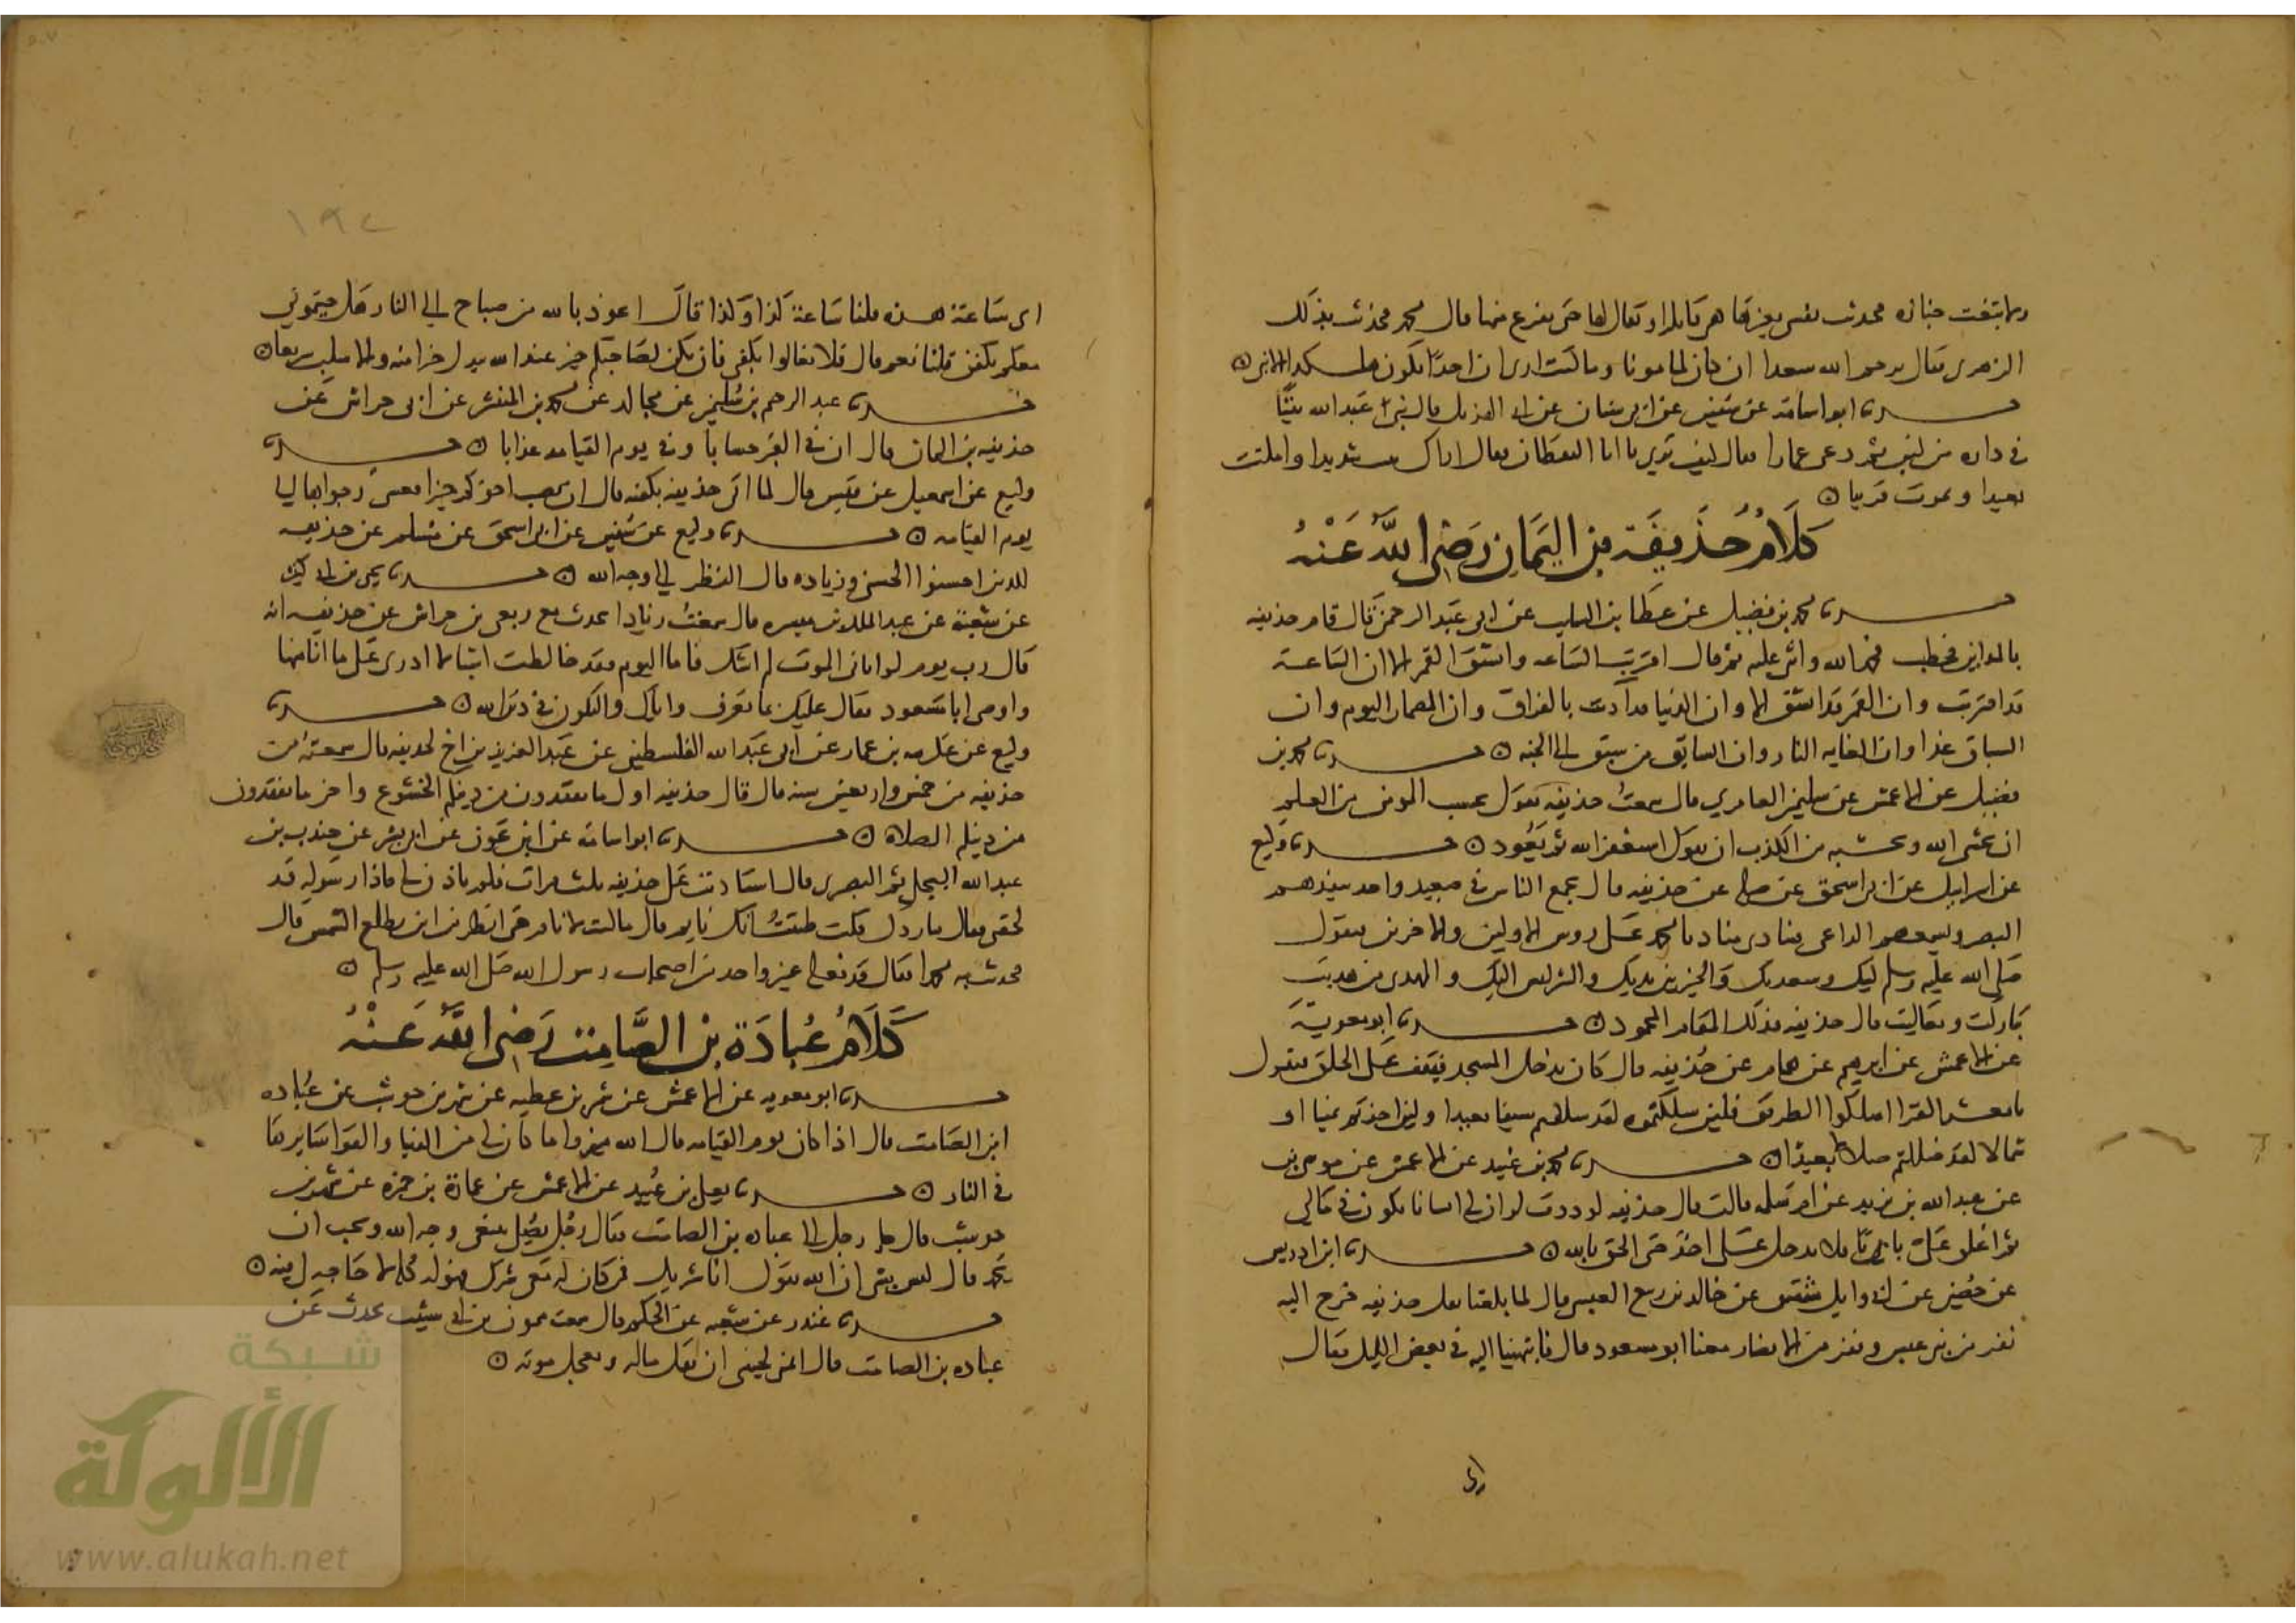 ولا تبعت جنازة فحدثت نفسي بغيرها هي قايلة او يقال لها حتى نفرغ منها قال محمد فحدثت بذلك
الزهري فقال يرحم الله سعدا ان كان لمامونا وما كنت ارى ان احدا يكون هكذا الا نبي
حدثنا ابو اسامة عن سفين عن ابي سنان عن ابي الهذيل قال بنى عبد الله بيتا
في داره من لبن ثم دعى عمارا فقال كيف ترى يا ابا اليقظان فقال اراك بنيت شديدا واملت
بعيدا وتموت قريبا
كلام حذيفة بن اليمان رضي الله عنه
حدثنا محمد بن فضيل عن عطا بن السايب عن ابي عبد الرحمن قال قام حذيفة
بالمداين فخطب فحمد الله واثنى عليه ثم قال اقتربت الساعة وانشق القمر الا ان الساعة
قد اقتربت وان القمر قد انشق الا وان الدنيا قد آذنت بالفراق وان المضمار اليوم وان
السباق غدا وان الغاية النار وان السابق من سبق الى الجنة حدثنا محمد بن
فضيل عن الاعمش عن سليمن العامري قال سمعت حذيفة يقول بحسب المومن من العلم
ان يخشى الله وبحسبه من الكذب ان يقول استغفر الله ثم يعود حدثنا وكيع
عن اسرايل عن ابي اسحق عن صلة عن حذيفة قال يجمع الناس في صعيد واحد ينفذهم
البصر ويسمعهم الداعي فينادي مناد يا محمد على روس الاولين والاخرين فيقول
صلى الله عليه وسلم لبيك وسعديك والخير بين يديك والشر ليس اليك والمهدي من هديت
تباركت وتعاليت قال حذيفة فذلك المقام المحمود حدثنا ابو معوية
عن الاعمش عن ابرهيم عن همام عن حذيفة قال كان يدخل المسجد فيقف على الحلق فيقول
يا معشر القرا اسلكوا الطريق فلين سلكتموه لقد سبقتم سبقا بعيدا ولين اخذتم يمينا او
شمالا لقد ضللتم ضلالا بعيدا حدثنا محمد بن عبيد عن الاعمش عن موسى بن
عن عبد الله بن يزيد عن ام سلمة قالت قال حذيفة لوددت لو ان لي انسانا يكون في مالي
ثم اغلق علي بابا فلا يدخل علي احد حتى الحق بالله حدثنا ابن ادريس
عن حصين عن ابي وايل شقيق عن خالد بن ربيع العبسي قال لما بلغنا ثقل حذيفة خرج اليه
نفر من بني عبس ونفر من الانصار معنا ابو مسعود قال فانتهينا اليه في بعض الليل فقال
اي
اي ساعة هذه قلنا ساعة كذا وكذا قال اعوذ بالله من صباح الى النار هل جيتموني
معكم بكفن قلنا نعم قال فلا تغالوا بكفني فان يكن لصاحبكم خير عند الله يبدل خيرا منه والا سلب سريعا
حدثنا عبد الرحيم بن سليمن عن مجالد عن محمد بن المنتشر عن ابن حراش عن
حذيفة بن اليمان قال ان في القبر حسابا وفي يوم القيامة عذابا حدثنا
وكيع عن اسمعيل عن قيس قال لما اتي حذيفة بكفنه قال ان يصب اخوكم خيرا فعسى والا فليترامن رجواها الى
يوم القيامة حدثنا وكيع عن سفين عن ابي اسحق عن مسلم عن حذيفة
للذين احسنوا الحسنى وزيادة قال النظر الى وجه الله حدثنا يحيى بن ابي بكير
عن شعبة عن عبد الملك بن ميسرة قال سمعت زيادا يحدث مع ربعي بن حراش عن حذيفة انه
قال رب يوم لو اتاني الموت لم اشك فاما اليوم فقد خالطت اشيا لا ادري على ما انا منها
واوصى ابا مسعود فقال عليك بما تعرف واياك والتلون في دين الله حدثنا
وكيع عن عكرمة بن عمار عن ابي عبد الله الفلسطيني عن عبد العزيز بن اخ لحذيفة قال سمعته من
حذيفة من خمس واربعين سنة قال قال حذيفة اول ما تفقدون من دينكم الخشوع واخر ما تفقدون
من دينكم الصلاة حدثنا ابو اسامة عن ابن عون عن ابي بشر عن جندب بن
عبد الله البجلي ثم القسري قال استاذنت على حذيفة ثلاث مرات فلم ياذن لي فاذا رسوله قد
لحقني فقال ما ردك قلت ظننت انك نايم قال ما كنت لانام حتى انظر من اين تطلع الشمس قال
فحدثت به محمدا فقال قد فعله غير واحد من اصحاب رسول الله صلى الله عليه وسلم
كلام عبادة بن الصامت رضي الله عنه
حدثنا ابو معوية عن الاعمش عن شمر بن عطية عن شهر بن حوشب عن عبادة
ابن الصامت قال اذا كان يوم القيامة قال الله ميزوا ما كان لي من الدنيا والقوا سايرها
في النار حدثنا يعلى بن عبيد عن الاعمش عن عمارة بن حمزة عن شهر بن
حوشب قال جا رجل الى عبادة بن الصامت فقال رجل يصلي يبتغي وجه الله ويحب ان
يحمد قال ليس بشي ان الله يقول انا خير شريك فمن كان له معي شرك فهو له كله لا حاجة لي فيه
حدثنا غندر عن شعبة عن الحكم قال سمعت ميمون بن ابي شبيب يحدث عن
عبادة بن الصامت قال اتمنى لحبيبي ان يقل ماله ويعجل موته
شبكة
الألوكة
www.alukah.net